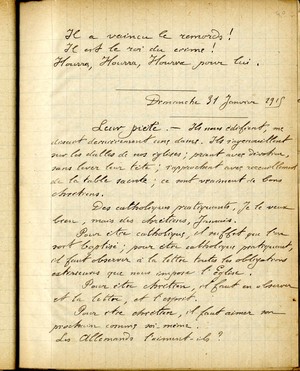 Il a vaincu le remords!
Il est le roi du crime!
Hourra, Hourra, Hourra pour lui.
Dimanche 31 Janvier 1915
Leur piété. — Ils nous édifient, me
disait dernièrement une dame. Ils s'agenouillent
sur les dalles de nos églises; prient avec dévotion,
sans lever leur tête; s'approchent avec recueillement
de la table sacrée; ce sont vraiment de bons
chrétiens.
Des catholiques pratiquants, Je le veux
bien, mais des chrétiens, Jamais.
Pour être catholique, il suffit que l'on
soit baptisé; pour être catholique pratiquant,
il faut observer à la lettre toutes les obligations
extérieures que nous impose l'Eglise.
Pour être chrétien, il faut en observer
et la lettre, et l'esprit.
Pour être chrétien, il faut aimer son
prochain comme soi-même.
Les Allemands l'aiment-ils?